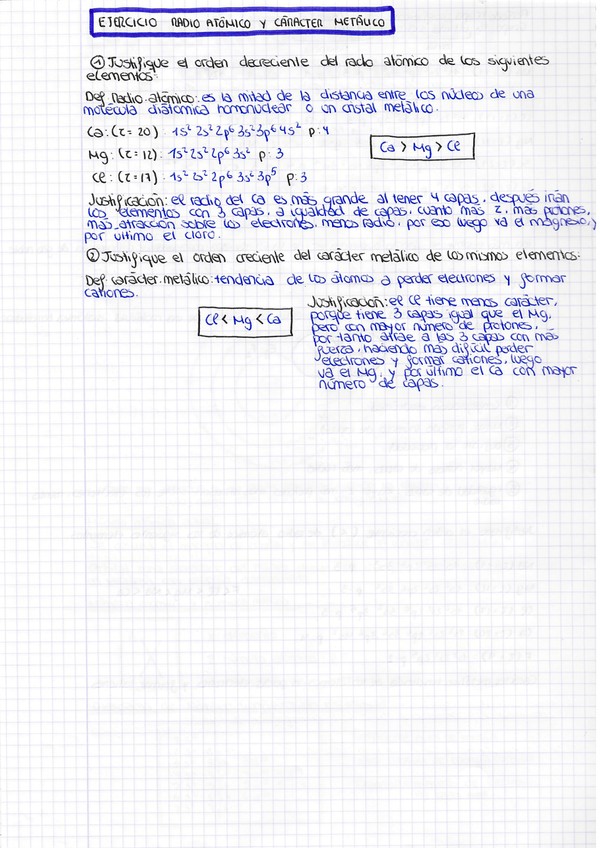 EJERCICIO RADIO ATÓMICO Y CARÁCTER METÁLICO
① Justifique el orden decreciente del radio atómico de los siguientes
elementos:
Def Radio atómico: es la mitad de la distancia entre los núcleos de una
molécula diatómica homonuclear o un cristal metálico.
Ca: (z = 20) 1s² 2s² 2p⁶ 3s² 3p⁶ 4s² p: 4
Mg: (z = 12): 1s² 2s² 2p⁶ 3s² p: 3
Cl: (z = 17): 1s² 2s² 2p⁶ 3s² 3p⁵ p: 3
Ca > Mg > Cl
Justificación: el radio del Ca es más grande al tener 4 capas, después irán
los elementos con 3 capas, a igualdad de capas, cuanto más z, más protones,
más atracción sobre los electrones, menos radio, por eso luego va el magnesio, y
por ultimo el cloro.
② Justifique el orden creciente del carácter metálico de los mismos elementos:
Def carácter metálico: tendencia de los átomos a perder electrones y formar
cationes.
Cl < Mg < Ca
Justificación: el Cl tiene menos carácter,
porque tiene 3 capas igual que el Mg,
pero con mayor número de protones,
por tanto atrae a las 3 capas con más
fuerza, haciendo más difícil perder
electrones y formar cationes, luego
va el Mg, y por último el Ca con mayor
número de capas.